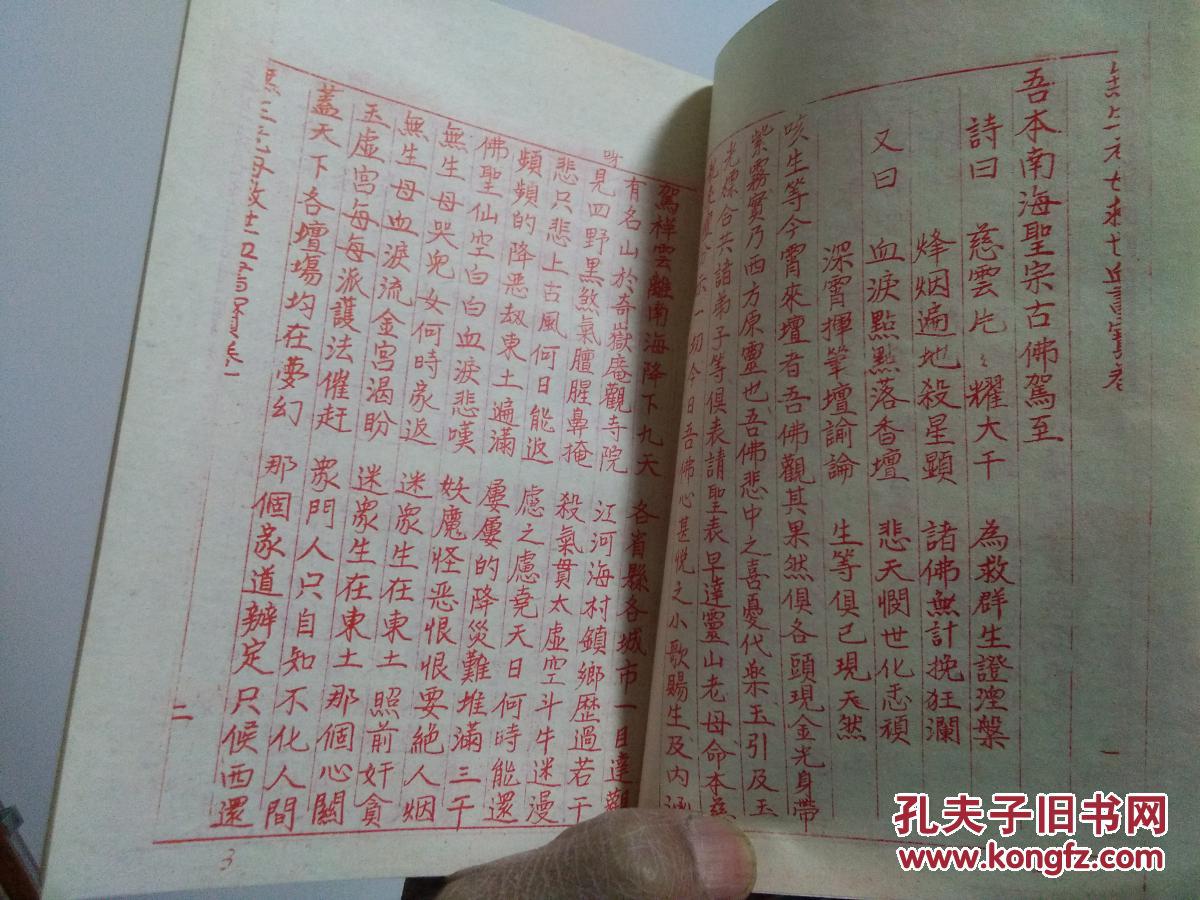 吾本南海聖宗古佛駕至
詩曰 慈雲片々耀大千 為救群生證湼槃
烽烟遍地殺星顯 諸佛無計挽狂瀾
又曰 血淚點點落香壇 悲天憫世化忎頑
深雪揮筆壇諭論 生等俱已現天然
咳生等今霄來壇者吾佛觀其果然俱各頭現金光身帶
紫霧實乃西方原靈也吾佛悲中之喜憂代楽玉引及玉
光缥合共諸弟子等俱表請聖表早達靈山老母命本慈
示一切今日吾佛心甚悅之小歌賜生及内
一
駕祥雲離南海降下九天 各省縣各城市一目達觀
有名山於奇嶽庵觀寺院 江河海村鎮鄉歷過若干
呀見四野黑煞氣膻腥鼻掩 殺氣貫太虛空斗牛迷漫
悲只悲上古風何日能返 慮之慮堯天日何時能還
頻頻的降惡劫東土遍滿 屢屢的降災難堆滿三千
佛聖仙空白白血淚悲嘆 妖魔怪恶恨恨要絕人烟
無生母哭兒女何時家返 迷眾生在東土照前奸貪
無生母血淚流金宮渴盼 迷眾生在東土那個心關
玉虛宮每每派護法催赶 眾門人只自知不化人間
蓋天下各壇塲均在夢幻 那個家道辦定只候西還
二
3
孔夫子旧书网
www.kongfz.com